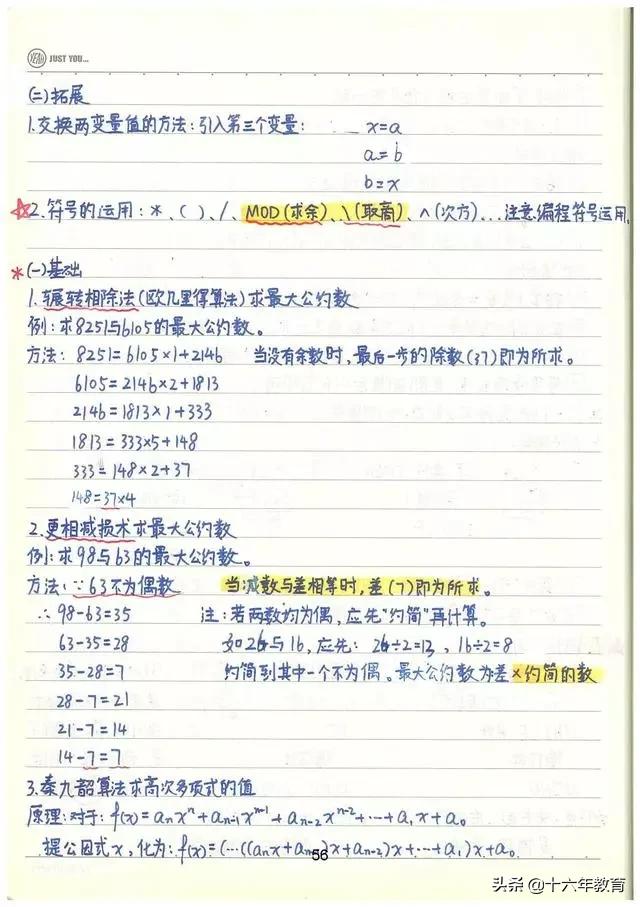 YEAH JUST YOU...
(二)拓展
1.交换两变量值的方法:引入第三个变量: x=a
a=b
b=x
☆2.符号的运用:*、( )、/、MOD(求余)、\(取商)、∧(次方)...注意编程符号运用.
*(一)基础
1.辗转相除法(欧几里得算法)求最大公约数
例:求8251与6105的最大公约数。
方法: 8251=6105×1+2146 当没有余数时,最后一步的除数(37)即为所求。
6105=2146×2+1813
2146=1813×1+333
1813=333×5+148
333=148×2+37
148=37×4
2.更相减损术求最大公约数
例:求98与63的最大公约数。
方法:∵63不为偶数 当减数与差相等时,差(7)即为所求。
∴98-63=35 注:若两数均为偶,应先"约简"再计算。
63-35=28 如26与16,应先:26÷2=13,16÷2=8
35-28=7 约简到其中一个不为偶。最大公约数为差×约简的数
28-7=21
21-7=14
14-7=7
3.秦九韶算法求高次多项式的值
原理:对于:f(x)=aₙxⁿ+aₙ₋₁xⁿ⁻¹+aₙ₋₂xⁿ⁻²+…+a₁x+a₀
提公因式x,化为:f(x)=(…((aₙx+aₙ₋₁)x+aₙ₋₂)x+…+a₁)x+a₀
56
头条@十六年教育